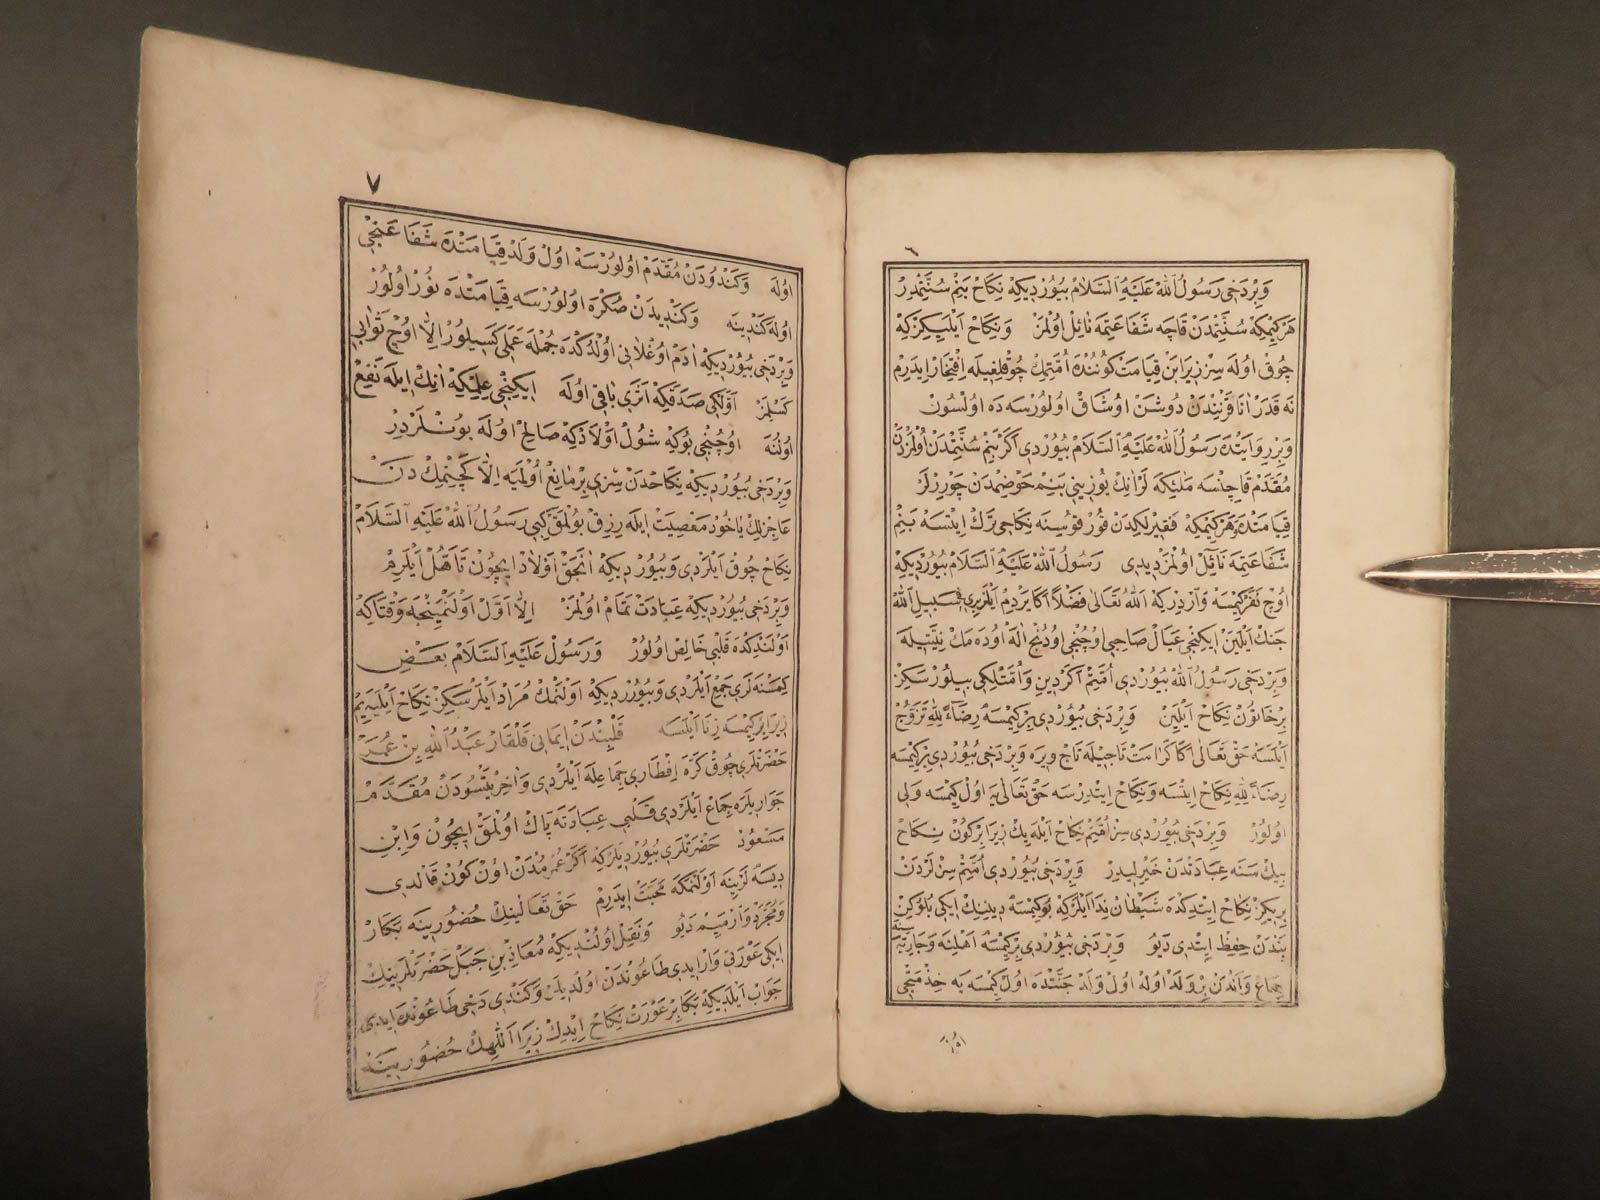 ٦
وَبِرْدَخِی رَسُولُ اللّٰه عَلَيْهِ السَّلَامْ بُيُورْدِيكِه نِكَاحْ بَنِمْ سُنَّتِمْدِرْ
هَرْكِمْكِه سُنَّتِمْدَنْ قَاچَه شَفَاعَتِمَه نَائِلْ اُولْمَزْ وَنِكَاحْ اَيْلَيِيكِزْكِه
چُوقْ اُولَه سِزْ زِيرَا بَنْ قِيَامَتْ كُونُنْدَه اُمَّتِمِكْ چُوقْلِغِيلَه اِفْتِخَارْ اِيدَرِمْ
نَه قَدَرْ اَنَا قَرْنِنْدَنْ دُوشَنْ اُوشَاقْ اُولُورْسَه دَه اُولْسُونْ
وَبِرْ رِوَايَتْدَه رَسُولُ اللّٰه عَلَيْهِ السَّلَامْ بُيُورْدِی اَكَرْ بَنِمْ سُنَّتِمْدَنْ اُولْمَزْدَنْ
مُقَدَّمْ قَاچِنْسَه مَلَئِكَه لَرْ اَنِكْ يُوزِينِی بَنِمْ حَوْضِمْدَنْ چَوِرِرْلَرْ
قِيَامَتْدَه وَهَرْكِمْكِه فَقِيرْلِكْدَنْ قُورْقُوسِنَه نِكَاحِی تَرْكْ اِيتْسَه بَنِمْ
شَفَاعَتِمَه نَائِلْ اُولْمَزْ دِيدِی رَسُولُ اللّٰه عَلَيْهِ السَّلَامْ بُيُورْدِيكِه
اُوچْ نَفَرْ كِيمْسَه وَارْدِرْكِه اَللّٰهُ تَعَالٰی فَضْلًا اَكَا يَرْدِمْ اَيْلَرْ بِرِی فِی سَبِيلِ اللّٰه
جَنْكْ اَيْلَيَنْ اِيكِنْجِی عِيَالْ صَاحِبِی اُوچُنْجِی اُودُنْجْ اَلَه اُودَه مَكْ نِيَّتِيلَه
وَبِرْدَخِی رَسُولُ اللّٰه بُيُورْدِی اُمَّتِمْ اَكَرْ دِينْ وَاُمَّتْلِكِی بِيلُورْسَكِزْ
بِرْخَاتُونْ نِكَاحْ اَيْلَيِنْ وَبِرْدَخِی بُيُورْدِی بِرْكِيمْسَه رِضَاءً لِلّٰهِ تَزَوُّجْ
اَيْلَسَه حَقْ تَعَالٰی اَكَا كَرَامَتْ تَاجِيلَه تَاجْ وِيرَه وَبِرْدَخِی بُيُورْدِی بِرْكِيمْسَه
رِضَاءً لِلّٰهِ نِكَاحْ اِيتْسَه وَنِكَاحْ اِيتْدِرْسَه حَقْ تَعَالٰی يَه اُولْ كِيمْسَه وَلِی
اُولُورْ وَبِرْدَخِی بُيُورْدِی سِزْ اُمَّتِمْ نِكَاحْ اَيْلَه يِكْ زِيرَا بِرْكُونْ نِكَاحْ
بِيكْ سَنَه عِبَادَتْدَنْ خَيْرْلِيدِرْ وَبِرْدَخِی بُيُورْدِی اُمَّتِمْ سِزْلَرْدَنْ
بِرِيكِزْ نِكَاحْ اِيتْدِكْدَه شَيْطَانْ نِدَا اَيْلَرْكِه بُوكِيمْسَه دِينِنِكْ اِيكِی بُلُوكِنْ
بَنْدَنْ حِفْظْ اِيتْدِی دَيُو وَبِرْدَخِی بُيُورْدِی بِرْكِيمْسَه اَهْلِنَه وَجَارِيَه سِنَه
جِمَاعْ وَاَنْدَنْ بِرْ وَلَدْ اُولَه اُولْ وَلَدْ جَنَّتْدَه اُولْ كِيمْسَه يَه خِدْمَتْجِی
اولہ
٧
اُولَه وَكَنْدُودَنْ مُقَدَّمْ اُولُورْسَه اُولْ وَلَدْ قِيَامَتْدَه شَفَاعَتْجِی
اُولَه كَنْدِينَه وَكَنْدِيدَنْ صُكْرَه اُولُورْسَه قِيَامَتْدَه نُورْ اُولُورْ
وَبِرْدَخِی بُيُورْدِيكِه اٰدَمْ اُوغْلَانِی اُولْدُكْدَه جُمْلَه عَمَلِی كَسِيلُورْ اِلَّا اُوچْ ثَوَابِی
كَسِلْمَزْ اَوَّلْكِی صَدَقَه كِه اَثَرِی بَاقِی اُولَه اِيكِنْجِی عِلِمْكِه اَنِكْ اِيلَه نَفِعْ
اُولُنَه اُوچُنْجِی بُوكِه شُولْ اَوْلَادْكِه صَالِحْ اُولَه بُونْلَرْدِرْ
وَبِرْدَخِی بُيُورْدِيكِه نِكَاحْدَنْ سِزِی بِرْ مَانِعْ اُولْمَيَه اِلَّا كَچِنْمِكْ دَنْ
عَاجِزْلِكْ يَاخُودْ مَعْصِيَتْ اِيلَه رِزِقْ بُولْمَقْ كِبِی رَسُولُ اللّٰه عَلَيْهِ السَّلَامْ
نِكَاحْ چُوقْ اَيْلَرْدِی وَبُيُورْدِيكِه اَنْجَقْ اَوْلَادْ اِيچُونْ تَاَهُّلْ اَيْلَرِمْ
وَبِرْدَخِی بُيُورْدِيكِه عِبَادَتْ تَمَامْ اُولْمَزْ اِلَّا اَوَّلْ اَوْلَنْمَيِنْجَه وَقْتَاكِه
اَوْلَنْدِكْدَه قَلْبِی خَالِصْ اُولُورْ وَرَسُولْ عَلَيْهِ السَّلَامْ بَعْضِ
كِيمْسَنَه لَرِی جَمِعْ اَيْلَرْدِی وَبُيُورْدِيكِه اَوْلَنْمَكْ مُرَادْ اَيْلَرْسَكِزْ نِكَاحْ اَيْلَيَيِمْ
زِيرَا بِرْكِيمْسَه زِنَا اَيْلَسَه قَلْبِنْدَنْ اِيمَانِی قَلْقَارْ عَبْدُ اللّٰهِ بِنْ عُمَرْ
حَضْرَتْلَرِی چُوقْ كَرَه اِفْطَارِی جِمَاعِلَه اَيْلَرْدِی وَاٰخِرْ يَتْسُودَنْ مُقَدَّمْ
جَوَارِيلَرَه جِمَاعْ اَيْلَرْدِی قَلْبِی عِبَادَتَه پَاكْ اُولْمَقْ اِيچُونْ وَابْنِ
مَسْعُودْ حَضْرَتْلَرِی بُيُورْدِيلَرْكِه اَكَرْ عُمْرُمْدَنْ اُونْ كُونْ قَالْدِی
دِيسَه لَرْ يِنَه اَوْلَنْمَكَه مَحَبَّتْ اِيدَرِمْ حَقْ تَعَالٰينِكْ حُضُورِينَه بَكَارْ
وَمُجَرَّدْ وَارْمَيِمْ دَيُو وَنَقِلْ اُولُنْدِيكِه مُعَاذْ بِنْ جَبَلْ حَضْرَتْلَرِينِكْ
اِيكِی عَوْرَتِی وَارْ اِيدِی طَاعُونْدَنْ اُولْدِيلَرْ وَكَنْدِی دَخِی طَاعُونْدَه اِيدِی
جَوَابْ اَيْلَدِيكِه بَكَا بِرْ عَوْرَتْ نِكَاحْ اِيدِكْ زِيرَا اَللّٰهِكْ حُضُورِينَه